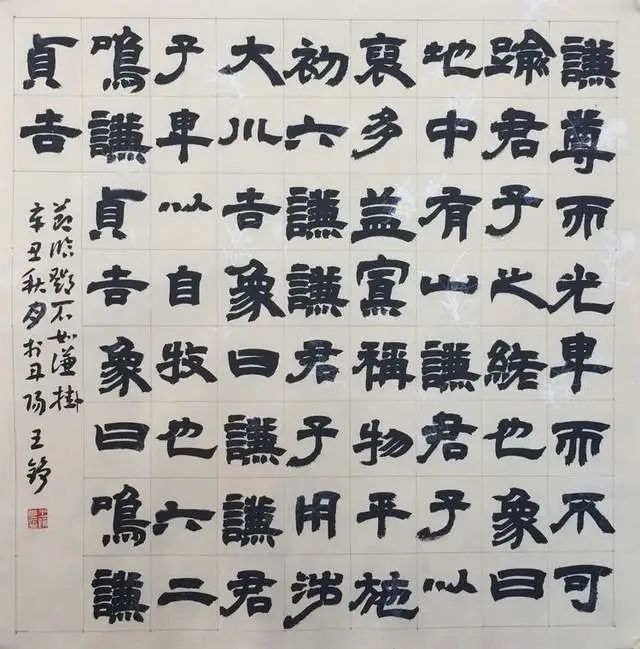 謙尊而光卑而不可
踰君子之終也象曰
地中有山謙君子以
裒多益寡稱物平施
初六謙謙君子用涉
大川吉象曰謙謙君
子卑以自牧也六二
鳴謙貞吉象曰鳴謙
貞吉
节临鄧石如谦掛
辛丑秋月於丹阳王铮